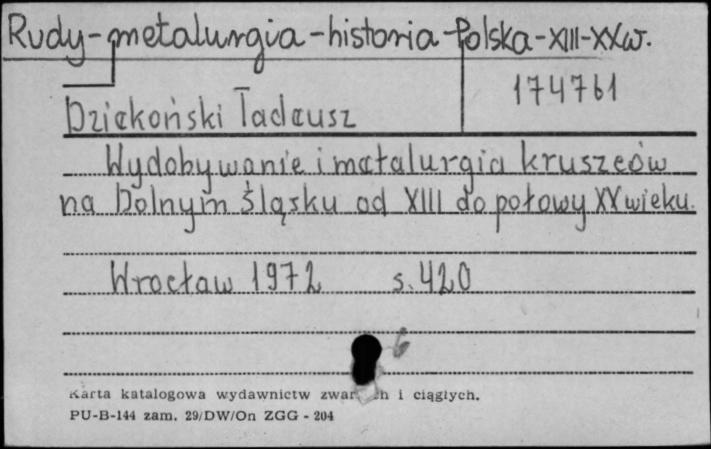 Rudy-metalurgia-historia-Polska-XIII-XXw.
174761
Dziekoński Tadeusz
Wydobywanie i metalurgia kruszców
na Dolnym Śląsku od XIII do połowy XX wieku.
Wrocław 1972 s. 420
6
Karta katalogowa wydawnictw i ciągłych.
PU-B-144 zam. 29/DW/On ZGG - 204